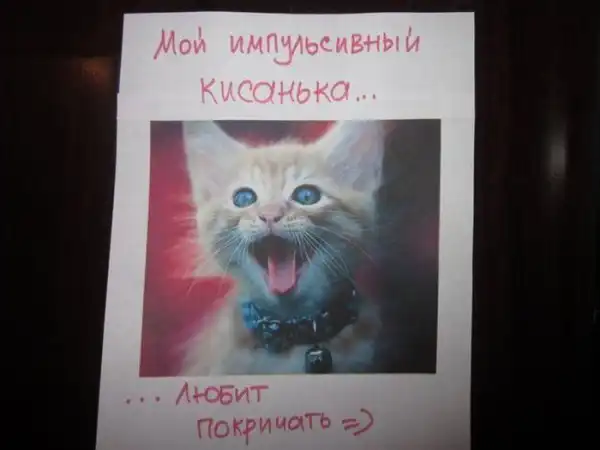 Мой импульсивный
кисанька...
... любит
покричать =)